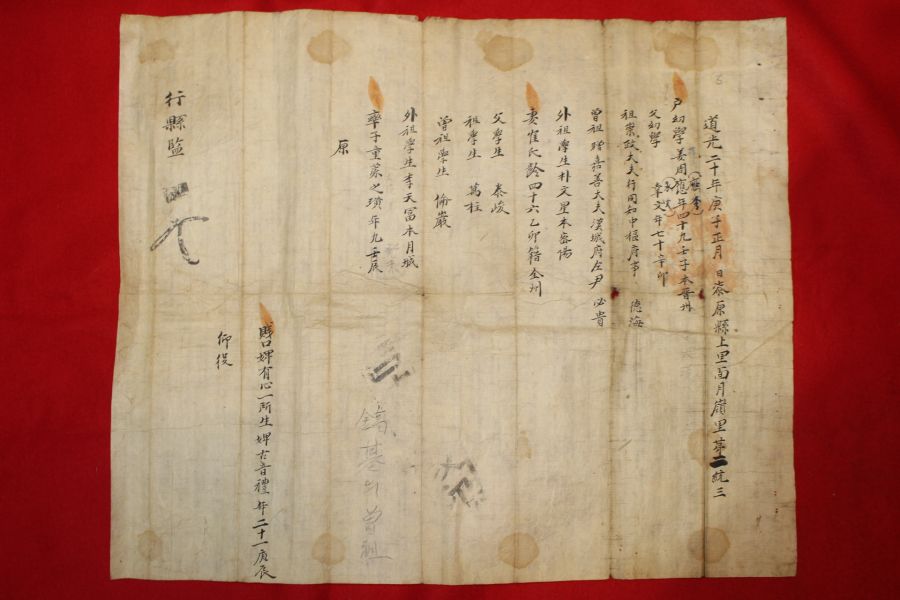 道光二十年庚子正月 日泰原縣上里面月嶺里第二統三
戶幼學姜周應年四十九壬子本晋州
父幼學 章文年七十辛卯
祖崇政大夫行同知中樞府事 德海
曾祖贈嘉善大夫漢城府左尹 必貴
外祖學生朴文星本密陽
妻崔氏齡四十六乙卯籍全州
父學生 泰峻
祖學生 萬柱
曾祖學生 倫嚴
外祖學生李天富本月城
率子童蒙之璜年九壬辰
原
賤口婢有心一所生婢古音禮年二十一庚辰
仰役
行縣監
鎬基의 曾祖